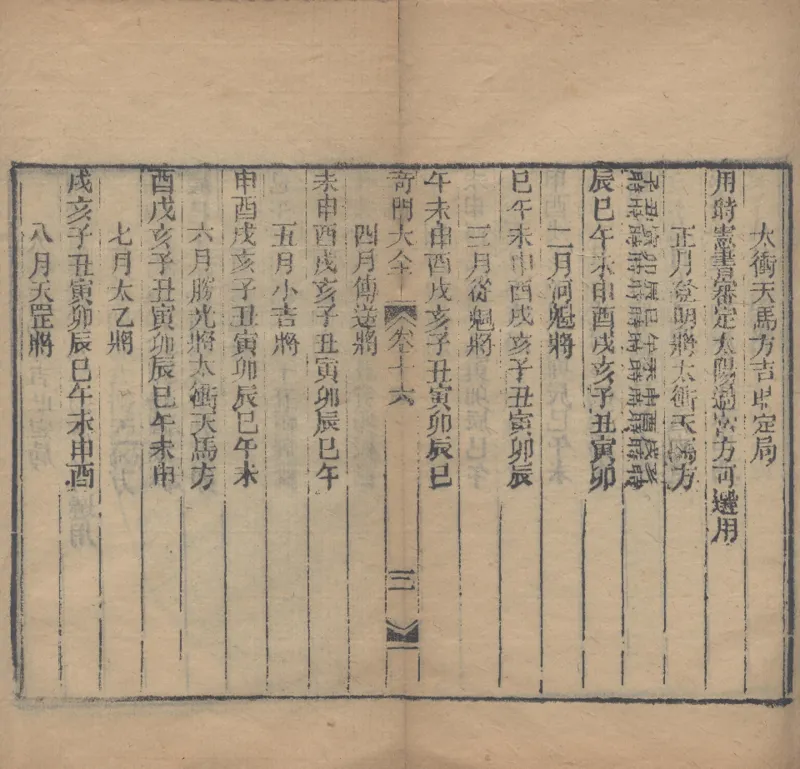 太衝天馬方吉時定局
用時憲書審定太陽過宮方可選用
正月登明將太衝天馬方
子時丑時寅時卯時辰時巳時午時未時申時酉時戌時亥時
辰巳午未申酉戌亥子丑寅卯
二月河魁將
巳午未申酉戌亥子丑寅卯辰
三月從魁將
午未申酉戌亥子丑寅卯辰巳
奇門大全 卷十六 三
四月傳送將
未申酉戌亥子丑寅卯辰巳午
五月小吉將
申酉戌亥子丑寅卯辰巳午未
六月勝光將太衝天馬方
酉戌亥子丑寅卯辰巳午未申
七月太乙將
戌亥子丑寅卯辰巳午未申酉
八月天罡將